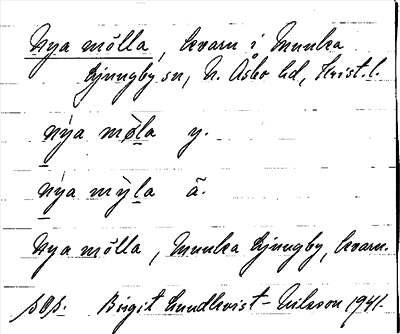 Nya mölla, kvarn i Munka
Ljungby sn, N. Åsbo hd, Krist. l.
nya møla y.
nya mÿla ä.
Nya mölla, Munka Ljungby, kvarn.
sOs. Birgit Lundkvist-Nilsson 1941.